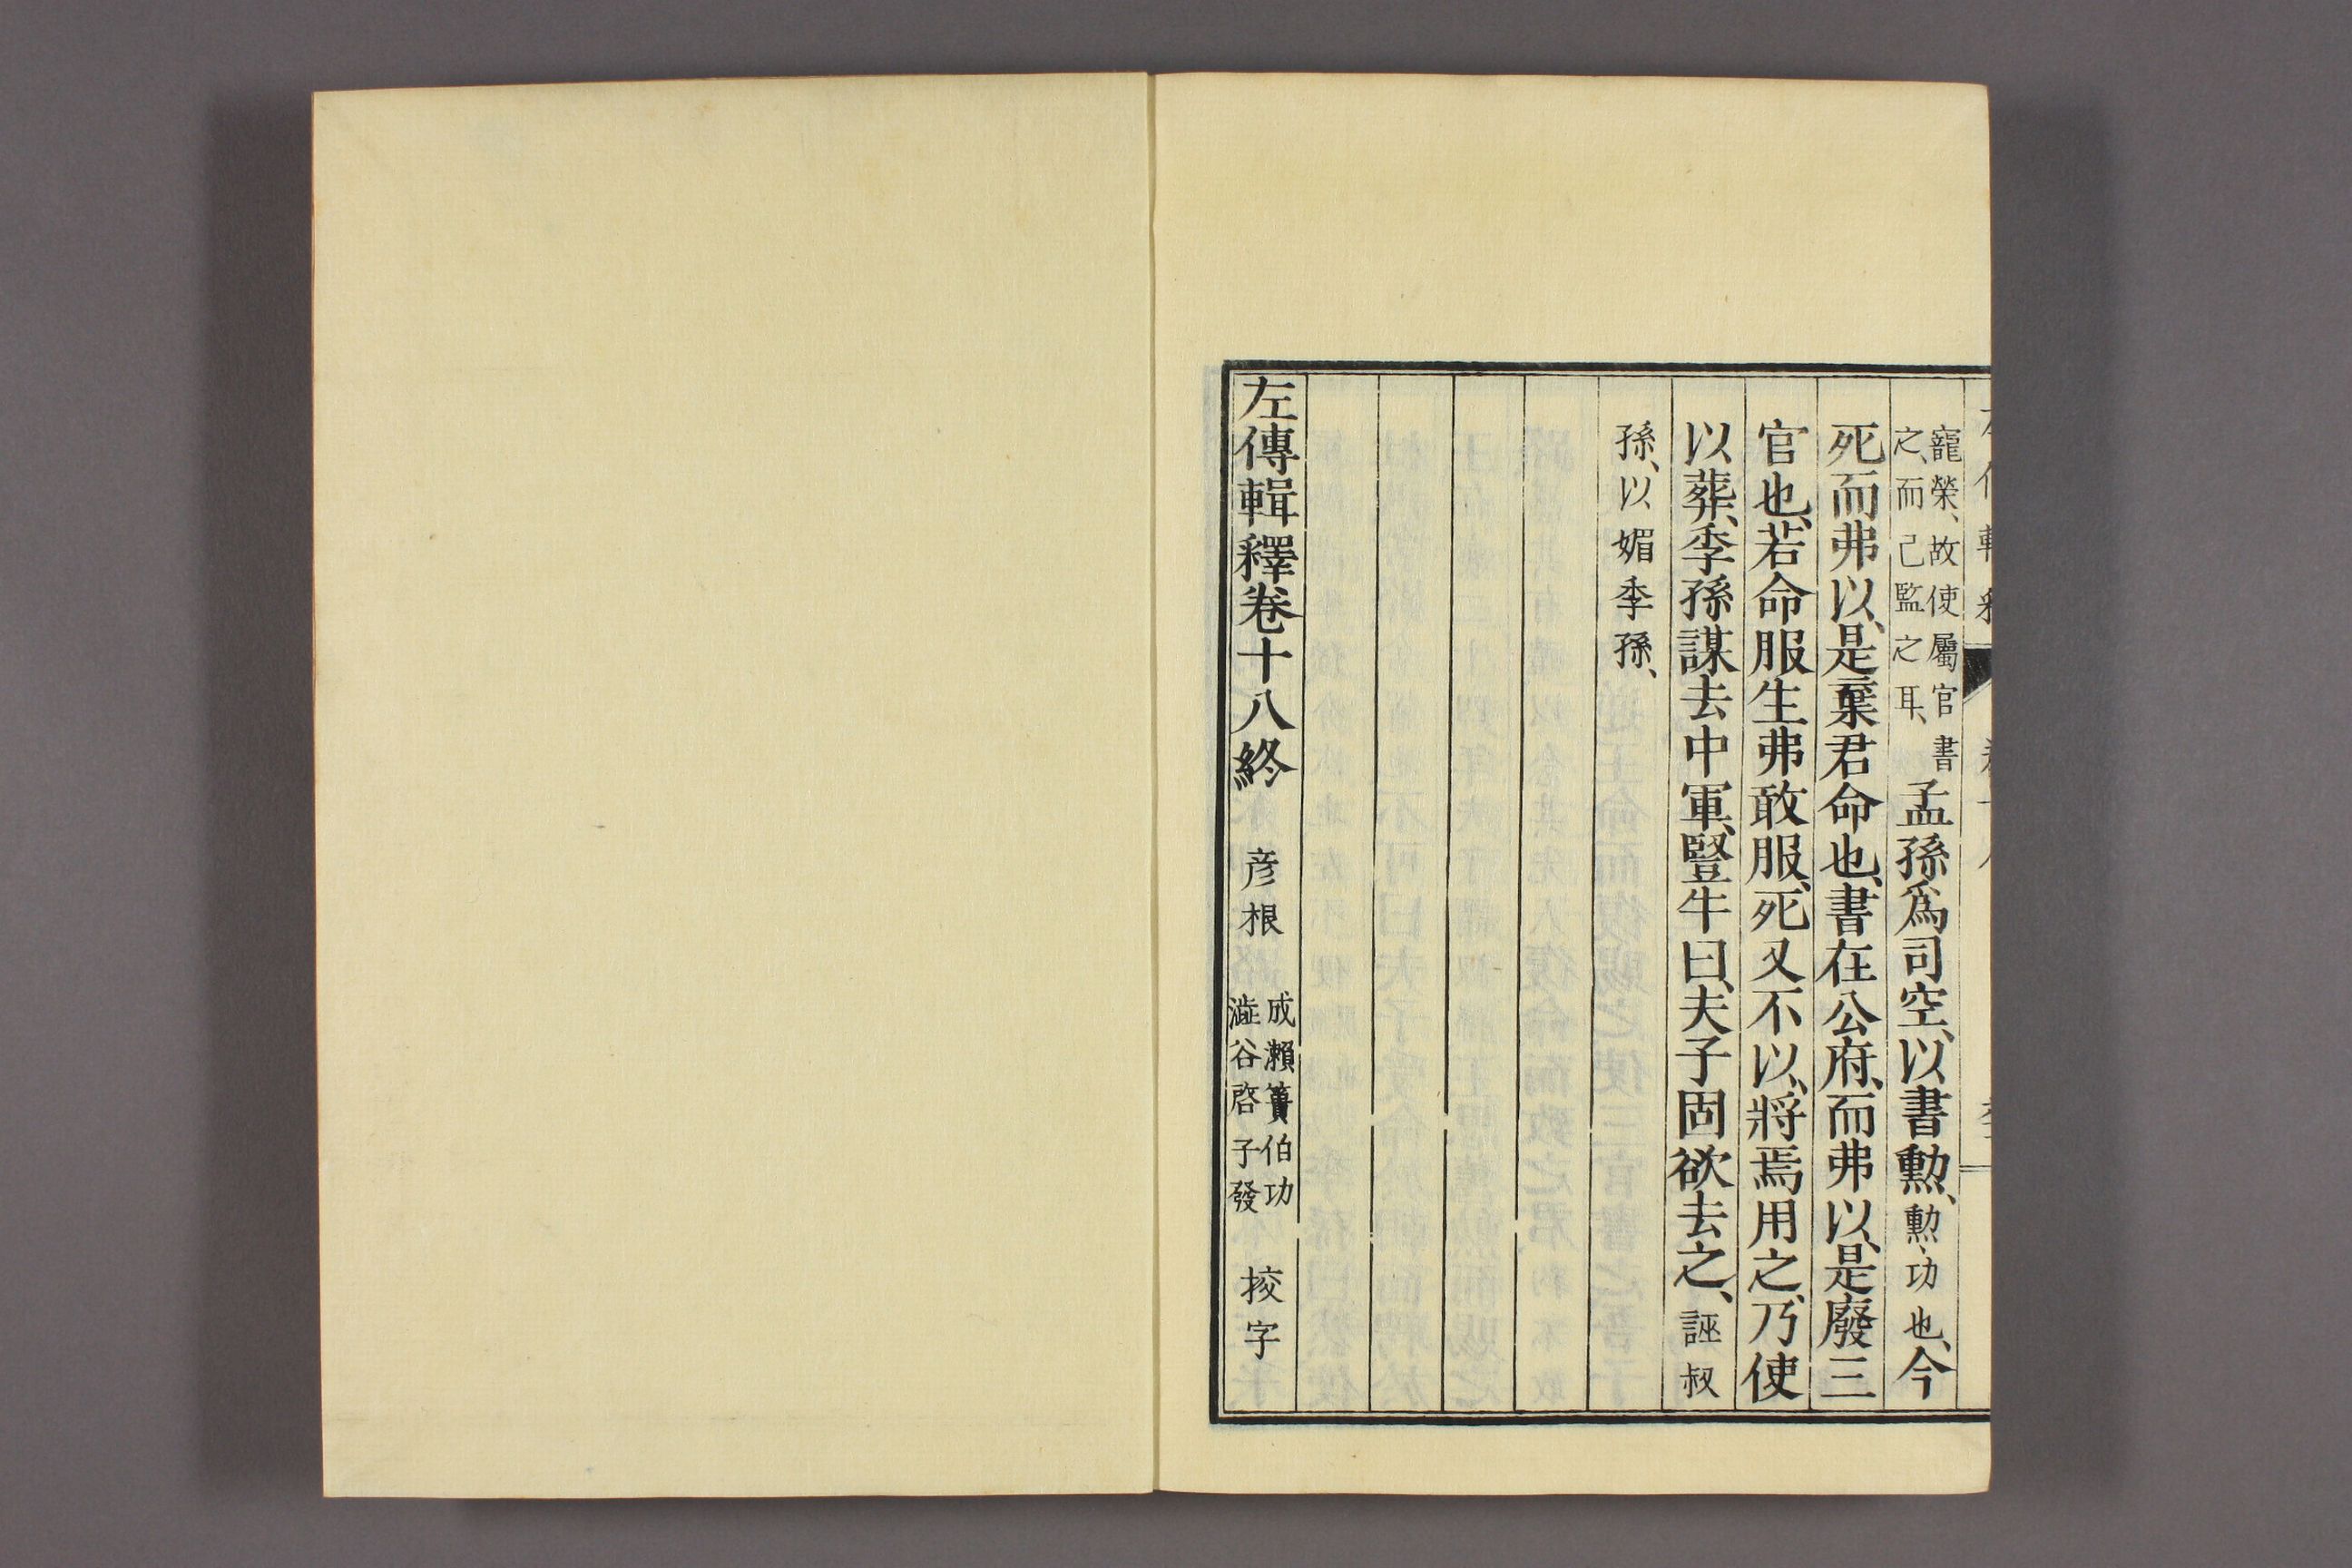 寵榮、故使屬官書
之、而己監之耳、
孟孫爲司空、以書勲、勲、功也、今
死而弗以、是棄君命也、書在公府、而弗以、是廢三
官也、若命服生弗敢服、死又不以、將焉用之、乃使
以葬、季孫謀去中軍、豎牛曰、夫子固欲去之、誣叔
孫、以媚季孫、
左傳輯釋卷十八終 彦根
成瀨簣伯功
澁谷啓子發
挍字